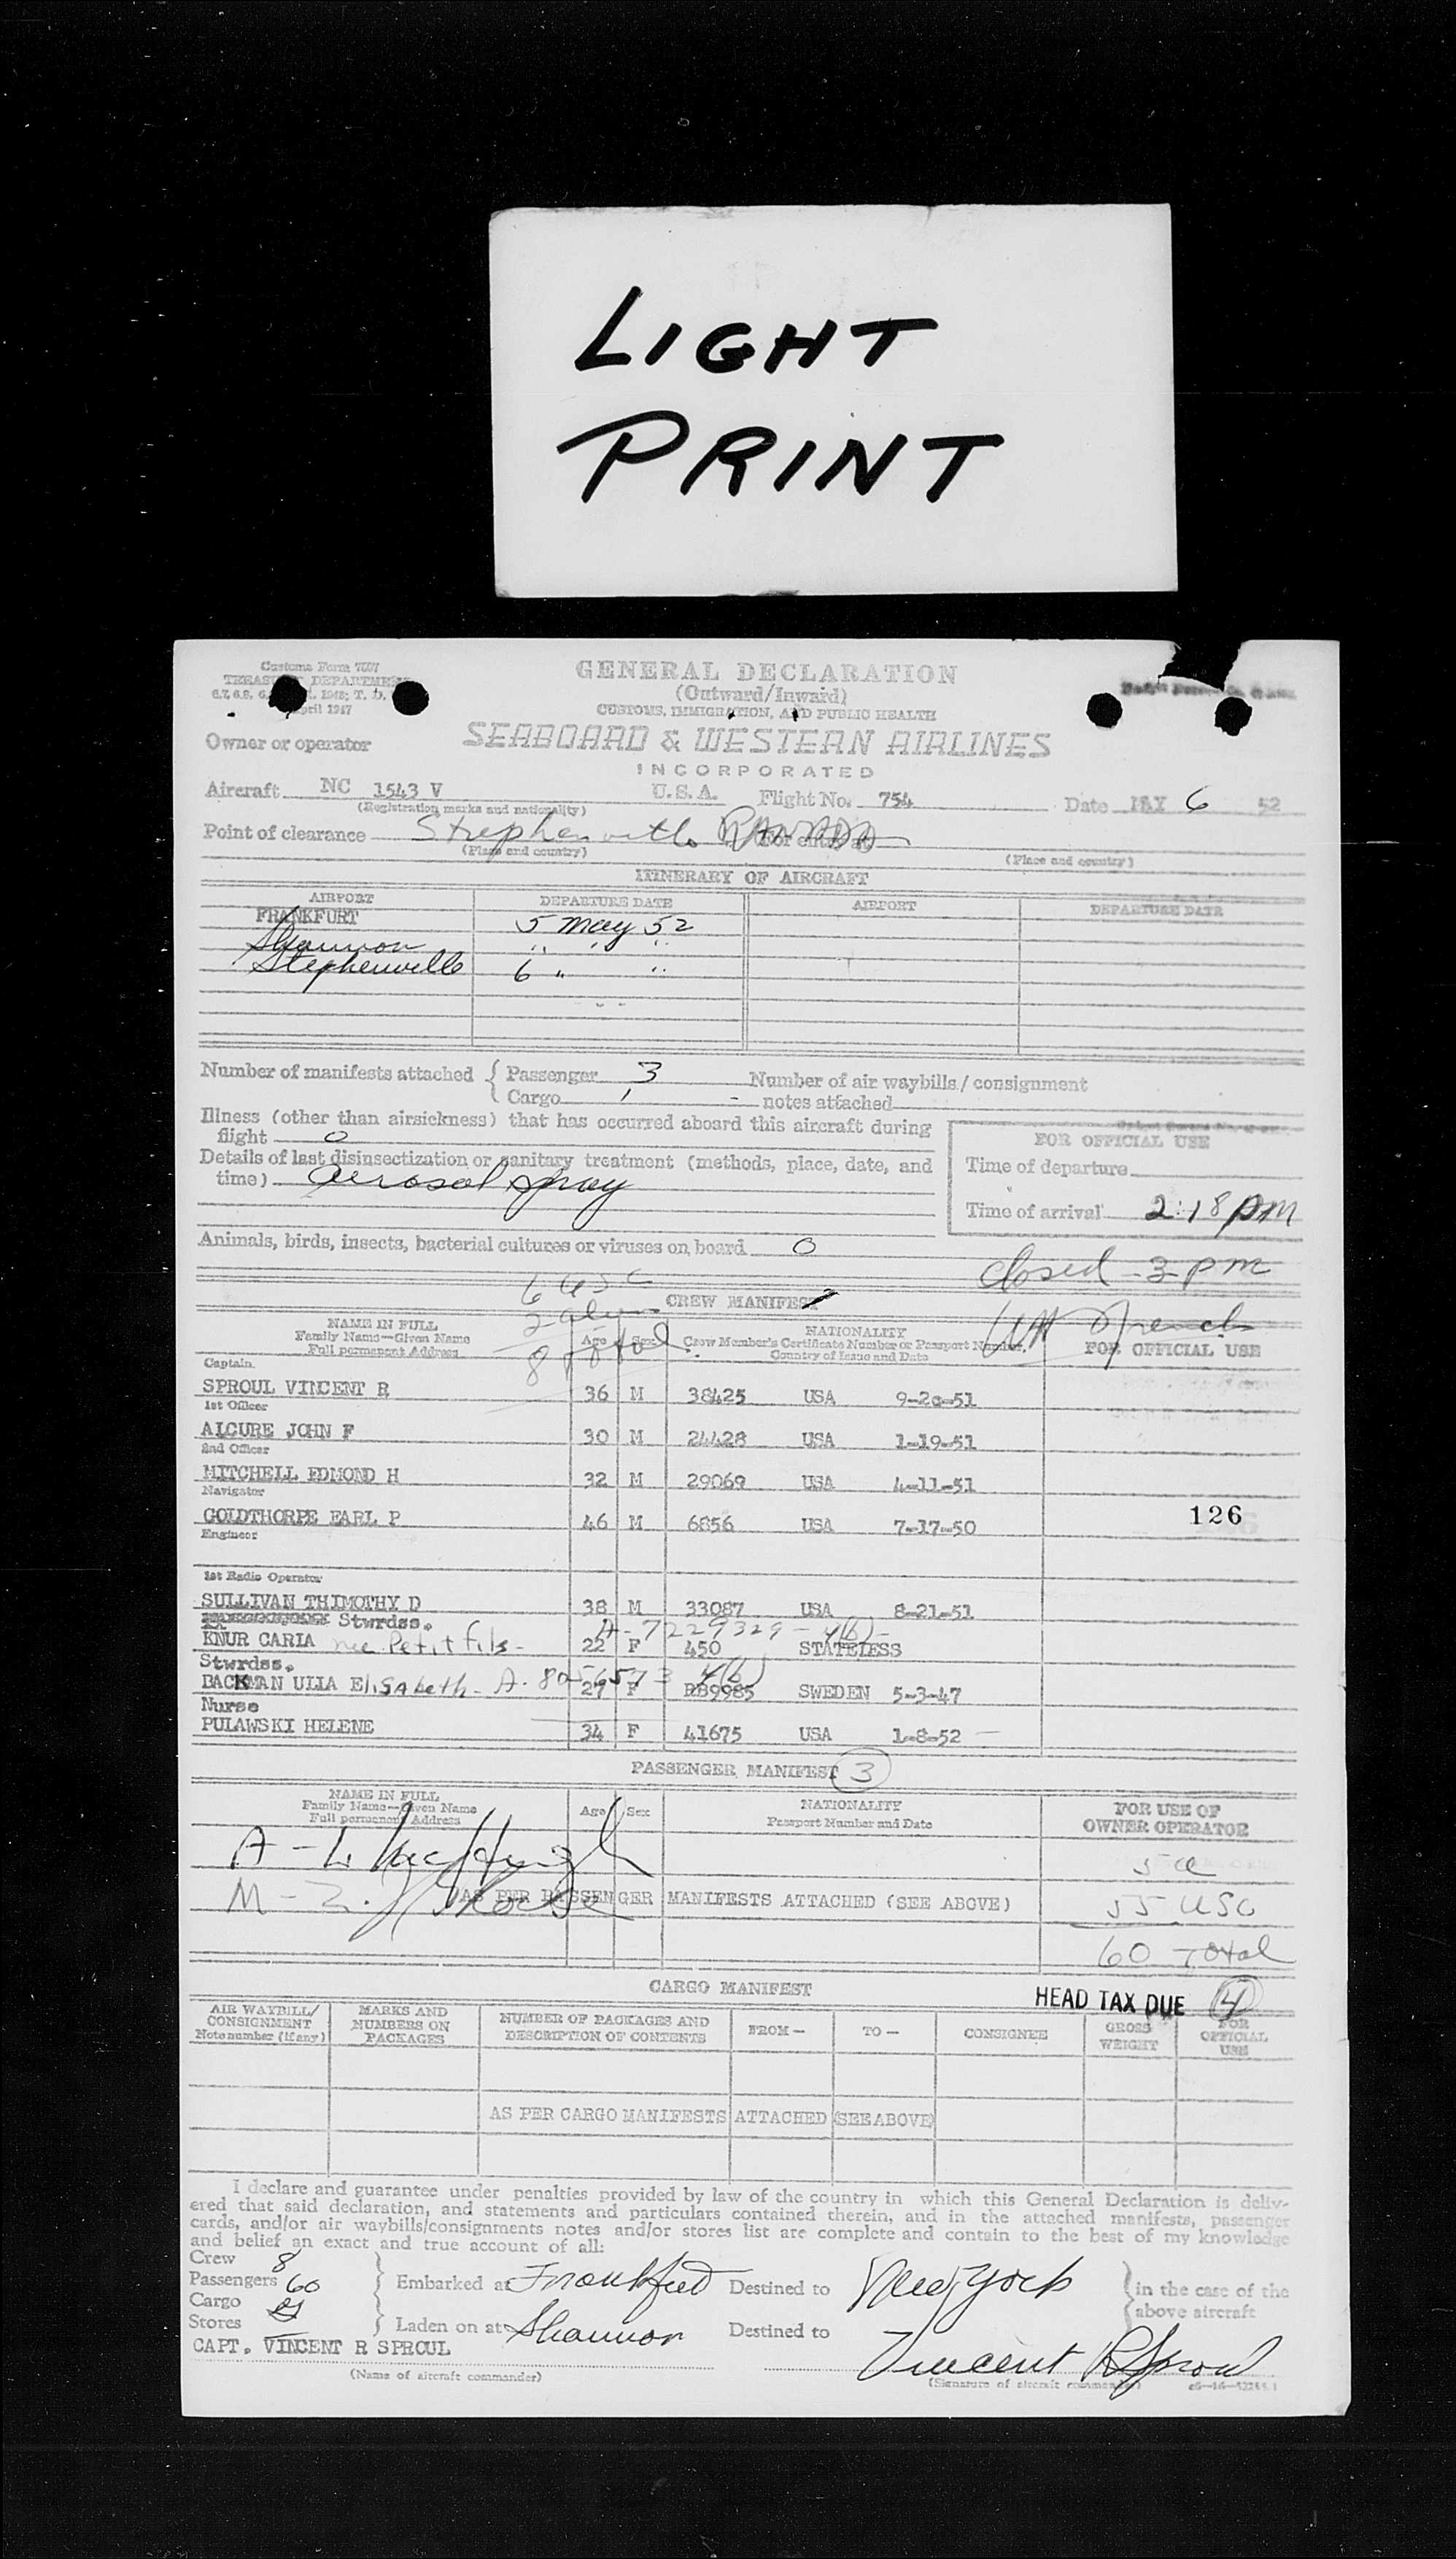 LIGHT
PRINT
Customs Form 7507
TREASURY DEPARTMENT
April 1947
GENERAL DECLARATION
(Outward/Inward)
CUSTOMS, IMMIGRATION, AND PUBLIC HEALTH
Owner or operator
SEABOARD & WESTERN AIRLINES
INCORPORATED
Aircraft NC 1543 V U.S.A. Flight No. 754 Date MAY 6 52
(Registration marks and nationality)
Point of clearance
(Place and country) (Place and country)
ITINERARY OF AIRCRAFT
AIRPORT DEPARTURE DATE AIRPORT DEPARTURE DATE
FRANKFURT 5 May 52
Shannon " " "
Stephenville 6 " "
Number of manifests attached { Passenger 3 Number of air waybills / consignment
Cargo notes attached
Illness (other than airsickness) that has occurred aboard this aircraft during
flight 0
FOR OFFICIAL USE
Details of last disinsectization or sanitary treatment (methods, place, date, and
time) Aerosol Spray
Time of departure
Time of arrival 2:18 pm
Animals, birds, insects, bacterial cultures or viruses on board 0
closed - 3 pm
6 USC
CREW MANIFEST
8 total
NAME IN FULL
Family Name—Given Name
Full permanent Address
Age Sex
NATIONALITY
Crew Member's Certificate Number or Passport Number,
Country of Issue and Date
FOR OFFICIAL USE
Captain
SPROUL VINCENT R 36 M 38425 USA 9-20-51
1st Officer
ALCURE JOHN F 30 M 24428 USA 1-19-51
2nd Officer
MITCHELL EDMOND H 32 M 29069 USA 4-11-51
Navigator
GOLDTHORPE EARL P 46 M 6856 USA 7-17-50 126
Engineer
1st Radio Operator
SULLIVAN THIMOTHY D 38 M 33087 USA 8-21-51
Stwrdss. A-7229329-4(b)-
KNUR CARIA nee Petit fils- 22 F 450 STATELESS
Stwrdss.
BACKMAN ULLA Elisabeth - A-8056573 4(b) 27 F RB9985 SWEDEN 5-3-47
Nurse
PULAWSKI HELENE 34 F 41675 USA 1-8-52
PASSENGER MANIFEST 3
NAME IN FULL
Family Name—Given Name
Full permanent Address
Age Sex
NATIONALITY
Passport Number and Date
FOR USE OF
OWNER OPERATOR
5 a
AS PER PASSENGER MANIFESTS ATTACHED (SEE ABOVE) 55 USC
60 Total
CARGO MANIFEST
HEAD TAX DUE 4
AIR WAYBILL/
CONSIGNMENT
Note number (if any)
MARKS AND
NUMBERS ON
PACKAGES
NUMBER OF PACKAGES AND
DESCRIPTION OF CONTENTS
FROM— TO— CONSIGNEE
GROSS
WEIGHT
FOR
OFFICIAL
USE
AS PER CARGO MANIFESTS ATTACHED (SEE ABOVE)
I declare and guarantee under penalties provided by law of the country in which this General Declaration is deliv-
ered that said declaration, and statements and particulars contained therein, and in the attached manifests, passenger
cards, and/or air waybills/consignments notes and/or stores list are complete and contain to the best of my knowledge
and belief an exact and true account of all:
Crew 8
Passengers 60 Embarked at Frankfurt Destined to New York in the case of the
Cargo above aircraft
Stores Laden on at Shannon Destined to
CAPT. VINCENT R SPROUL Vincent R Sproul
(Name of aircraft commander) (Signature of aircraft commander)